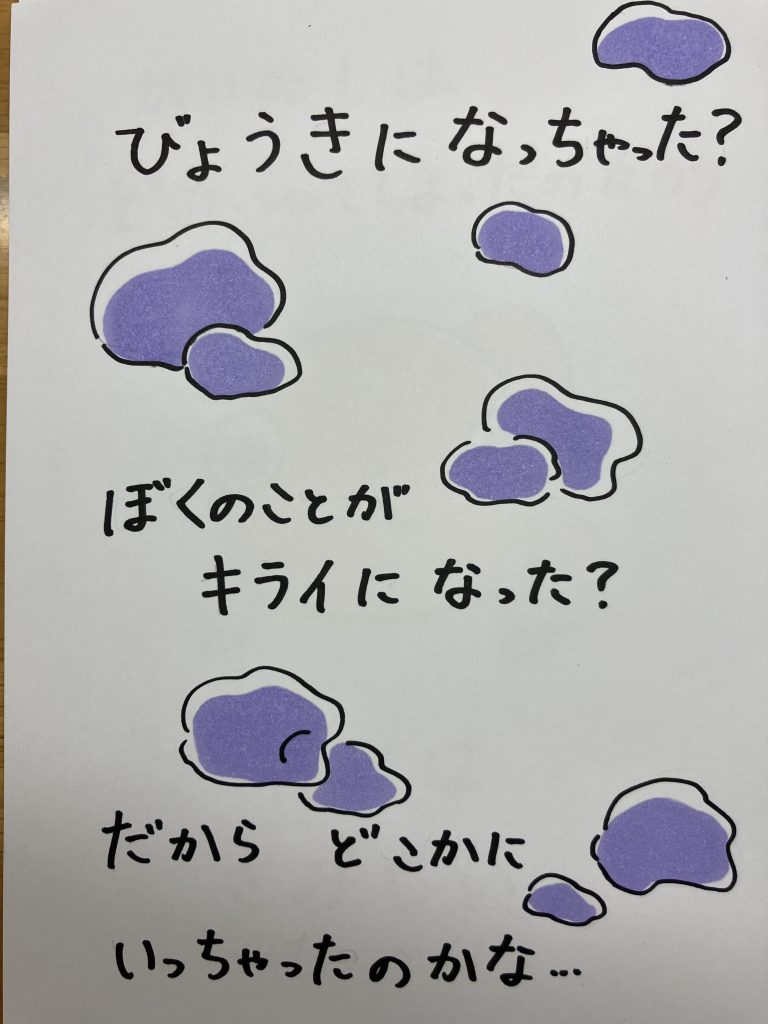 びょうきに なっちゃった?
ぼくのことが
キライに なった?
だから どこかに
いっちゃったのかな…